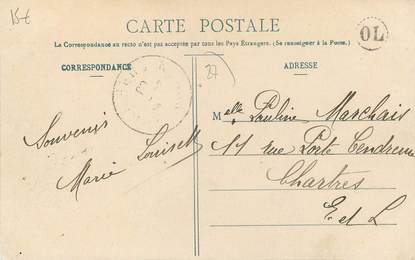 15€
CARTE POSTALE
La Correspondance au recto n'est pas acceptée par tous les Pays Etrangers. (Se renseigner à la Poste.)
OL
CORRESPONDANCE
ADRESSE
Souvenirs
Marie Louise
Melle Pauline Marchais
11 rue Porte Cendreuse
Chartres
E et L